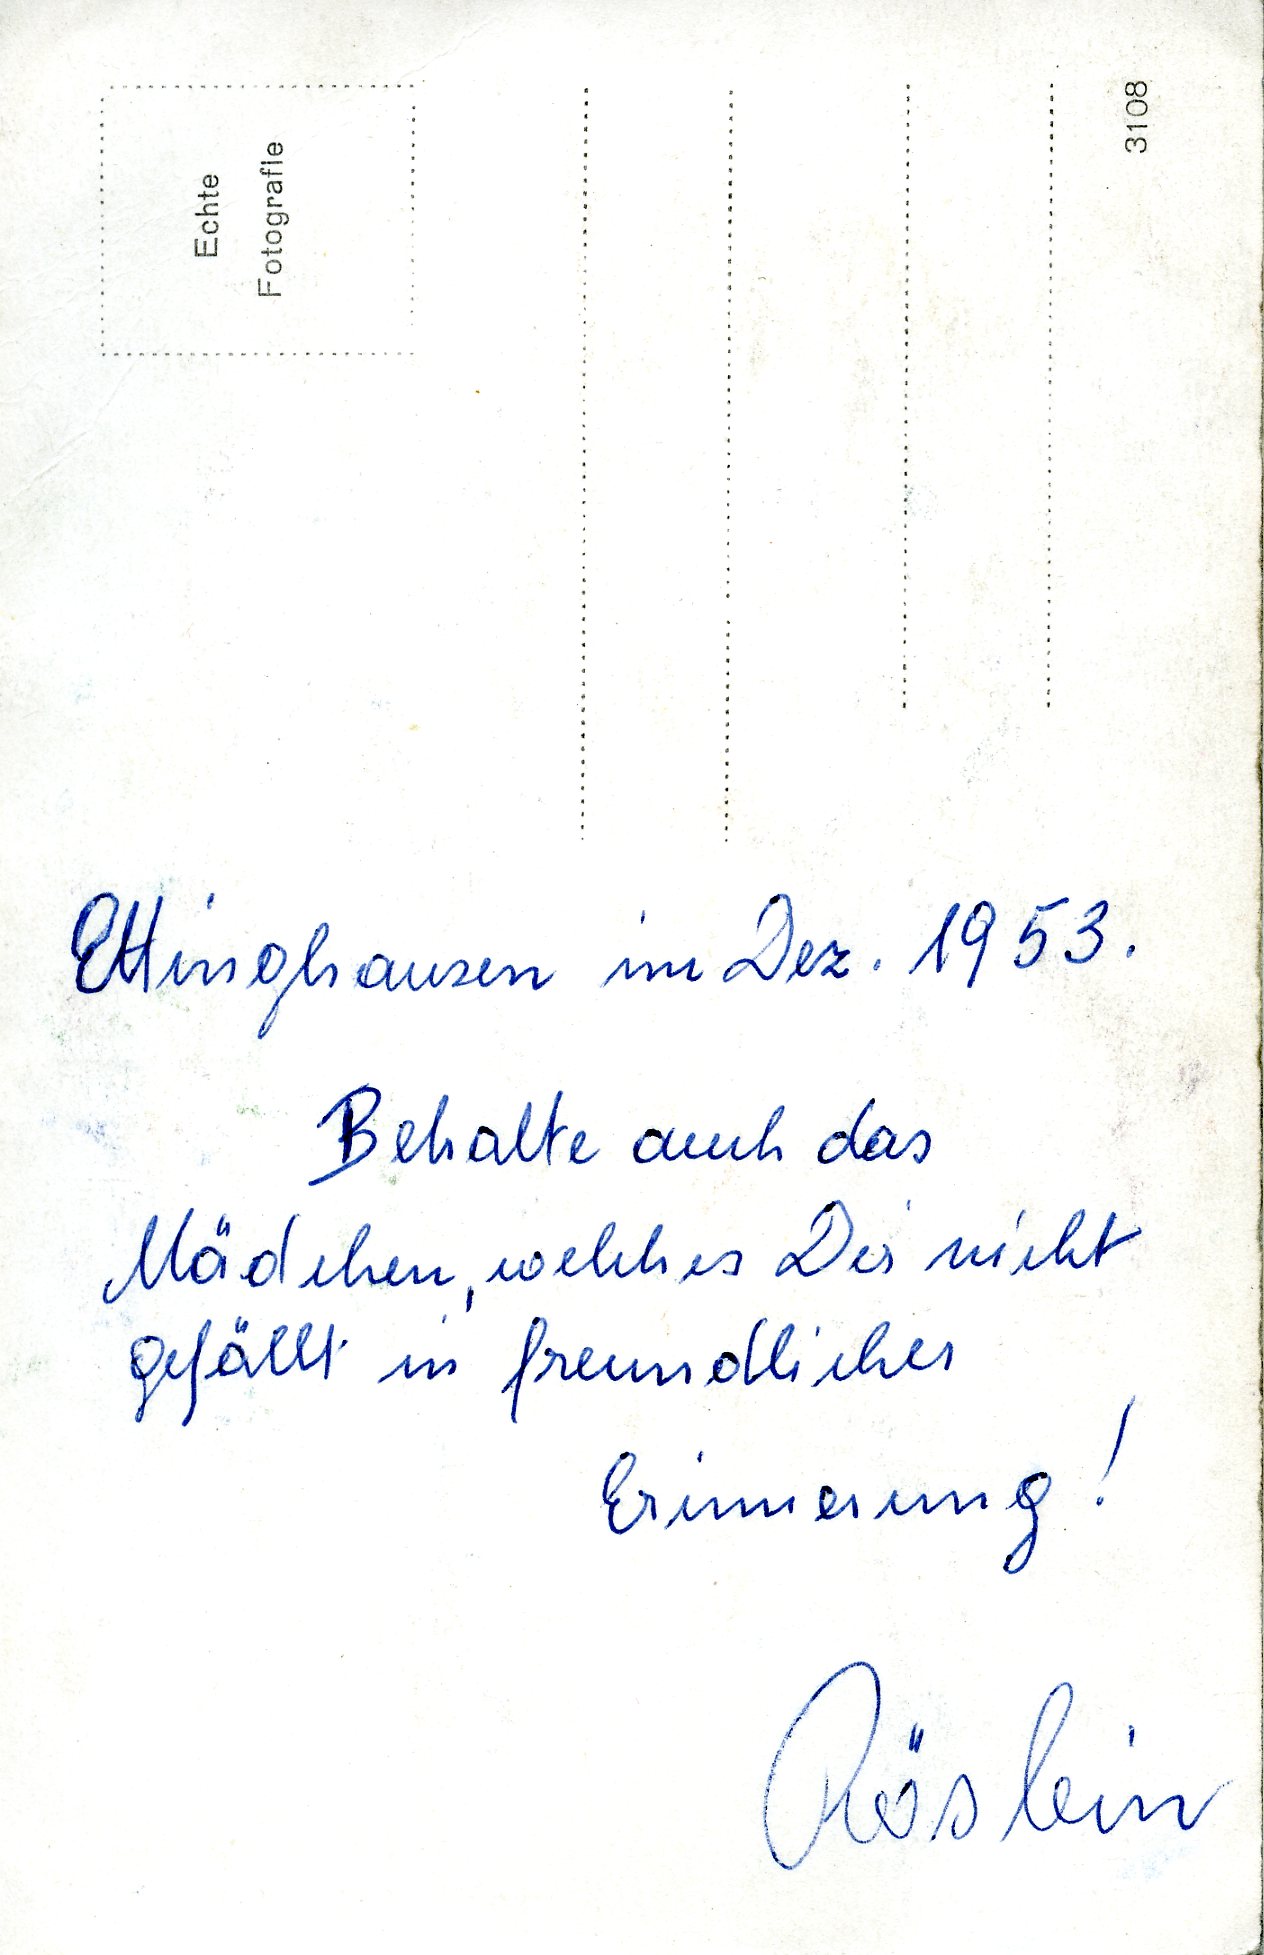 Echte
Fotografie
3108
Ettinghausen im Dez. 1953.
Behalte auch das
Mädchen, welches Dir nicht
gefällt in freundlicher
Erinnerung!
Röslein